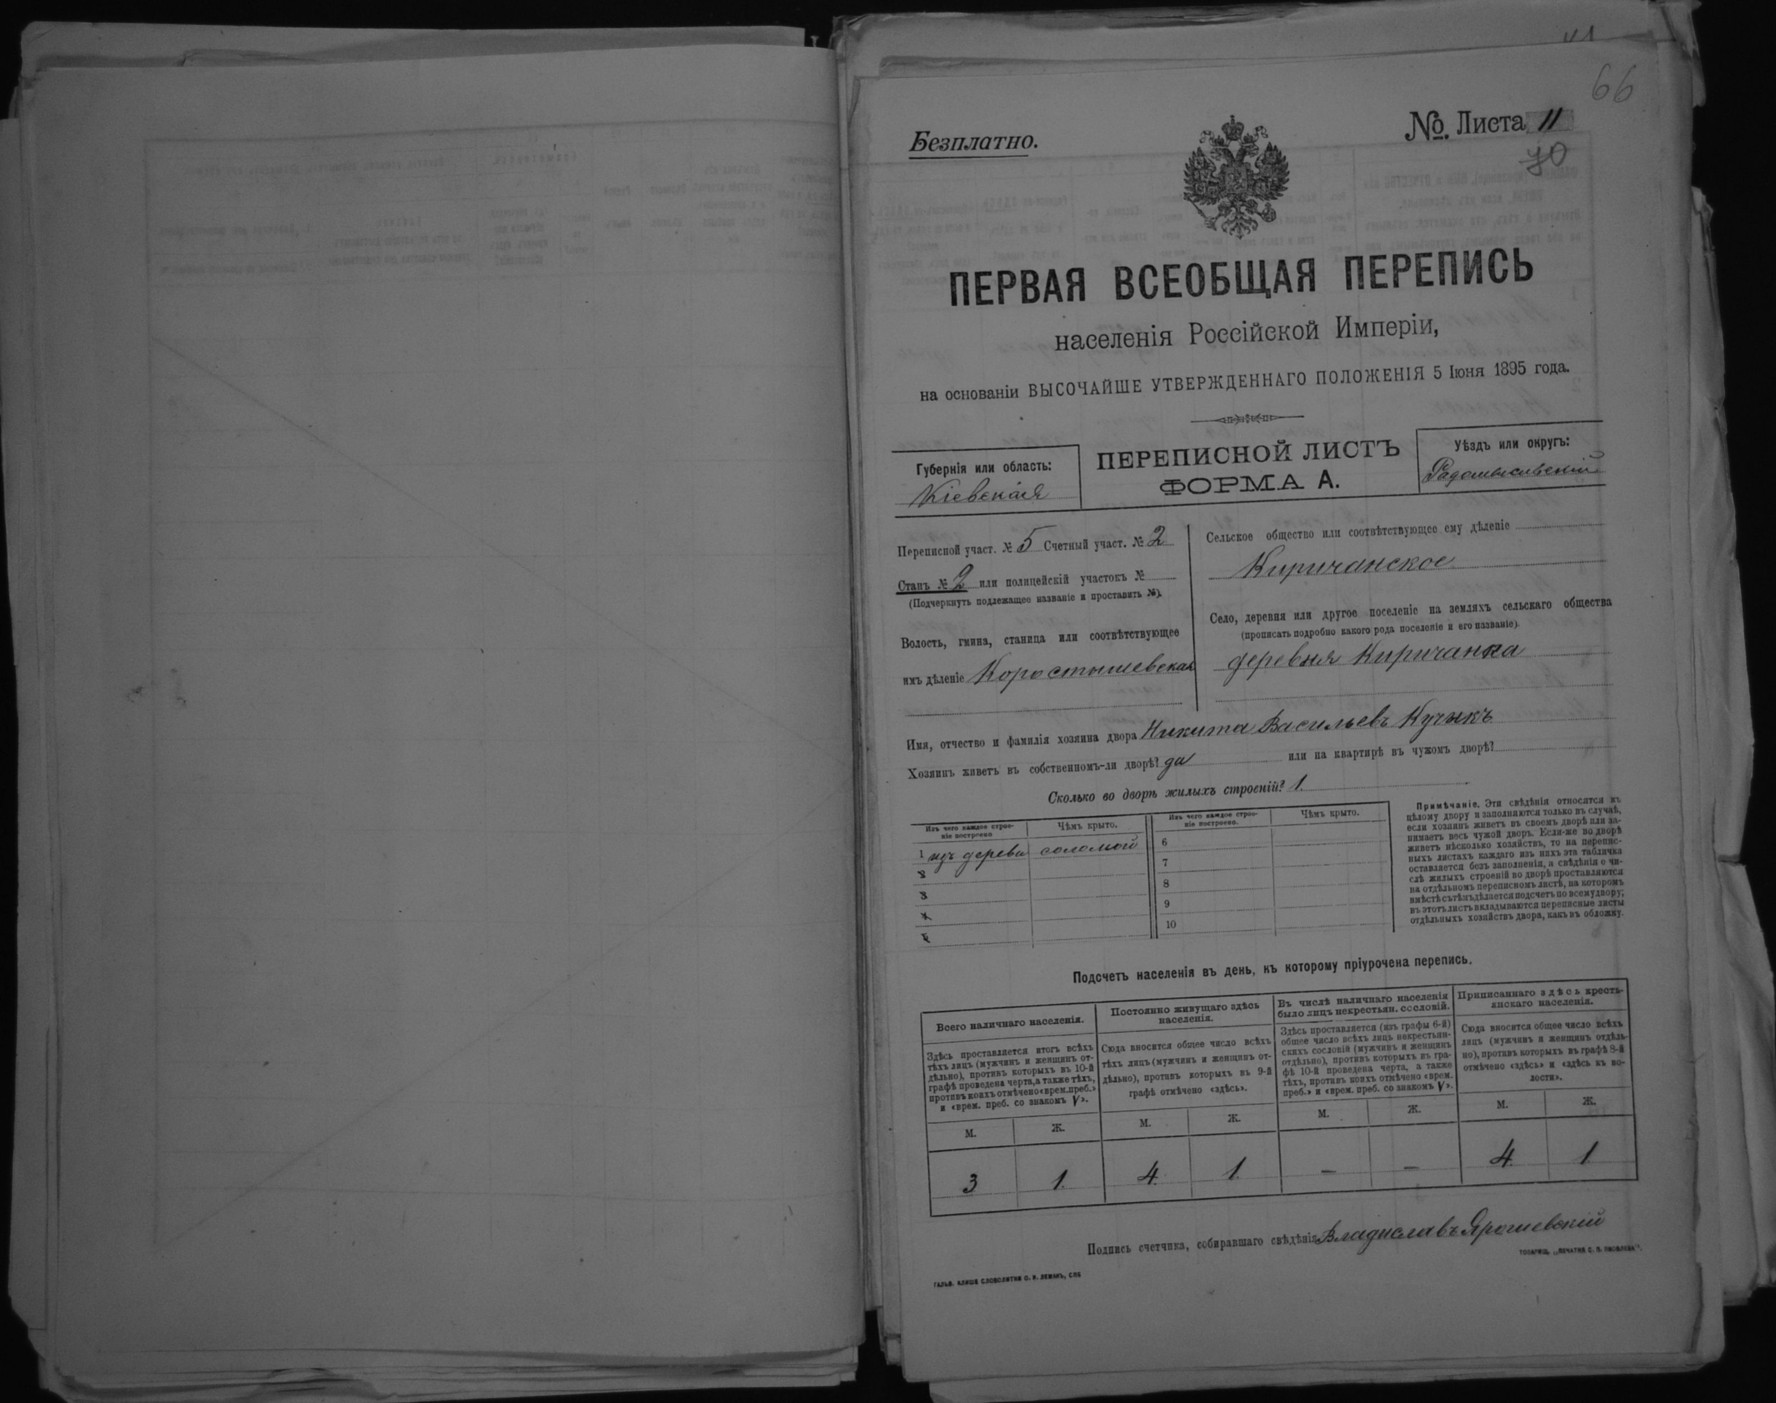 66
Безплатно.
№. Листа 11
70
ПЕРВАЯ ВСЕОБЩАЯ ПЕРЕПИСЬ
населенія Россійской Имперіи,
на основаніи ВЫСОЧАЙШЕ УТВЕРЖДЕННАГО ПОЛОЖЕНІЯ 5 Іюня 1895 года.
Губернія или область:
Кіевская
ПЕРЕПИСНОЙ ЛИСТЪ
ФОРМА А.
Уѣздъ или округъ:
Радомысльскій
Переписной участ. № 5 Счетный участ. № 2
Станъ № 2 или полицейскій участокъ №
(Подчеркнуть подлежащее названіе и проставить №).
Волость, гмина, станица или соотвѣтствующее
имъ дѣленіе Коростышевская
Сельское общество или соотвѣтствующее ему дѣленіе
Киричанское
Село, деревня или другое поселеніе на земляхъ сельскаго общества
(прописать подробно какого рода поселеніе и его названіе)
деревня Киричанка
Имя, отчество и фамилія хозяина двора Никита Васильевъ
Хозяинъ живетъ въ собственномъ-ли дворѣ? да или на квартирѣ въ чужомъ дворѣ?
Сколько во дворѣ жилыхъ строеній? 1.
Изъ чего каждое строе-
ніе построено
Чѣмъ крыто.
Изъ чего каждое строе-
ніе построено.
Чѣмъ крыто.
1 изъ дерева соломой
2
3
4
5
6
7
8
9
10
Примѣчаніе. Эти свѣдѣнія относятся къ
цѣлому двору и заполняются только въ случаѣ,
если хозяинъ живетъ въ своемъ дворѣ или за-
нимаетъ весь чужой дворъ. Если-же во дворѣ
живетъ нѣсколько хозяйствъ, то на перепис-
ныхъ листахъ каждаго изъ нихъ эта табличка
оставляется безъ заполненія, а свѣдѣнія о чи-
слѣ жилыхъ строеній во дворѣ проставляются
на отдѣльномъ переписномъ листѣ, на которомъ
вмѣстѣ съ тѣмъ дѣлается подсчетъ по всему двору;
въ этотъ листъ вкладываются переписные листы
отдѣльныхъ хозяйствъ двора, какъ въ обложку.
Подсчетъ населенія въ день, къ которому пріурочена перепись.
Всего наличнаго населенія.
Здѣсь проставляется итогъ всѣхъ
тѣхъ лицъ (мужчинъ и женщинъ от-
дѣльно), противъ которыхъ въ 10-й
графѣ проведена черта, а также тѣхъ,
противъ коихъ отмѣчено «врем. преб.»
и «врем. преб. со знакомъ V».
Постоянно живущаго здѣсь
населенія.
Сюда вносится общее число всѣхъ
тѣхъ лицъ (мужчинъ и женщинъ от-
дѣльно), противъ которыхъ въ 9-й
графѣ отмѣчено «здѣсь».
Въ числѣ наличнаго населенія
было лицъ некрестьян. сословій.
Здѣсь проставляется (изъ графы 6-й)
общее число всѣхъ лицъ некрестьян-
скихъ сословій (мужчинъ и женщинъ
отдѣльно), противъ которыхъ въ гра-
фѣ 10-й проведена черта, а также
тѣхъ, противъ коихъ отмѣчено «врем.
преб.» и «врем. преб. со знакомъ V».
Приписаннаго здѣсь кресть-
янскаго населенія.
Сюда вносится общее число всѣхъ
лицъ (мужчинъ и женщинъ отдѣль-
но), противъ которыхъ въ графѣ 8-й
отмѣчено «здѣсь» и «здѣсь въ во-
лости».
М. Ж. М. Ж. М. Ж. М. Ж.
3 1. 4. 1. — — 4. 1
Подпись счетчика, собиравшаго свѣдѣнія Владиславъ Ярошевскій
ГАЛЬВ. КЛИШЕ СЛОВОЛИТНИ О. И. ЛЕМАНЪ, СПБ
ТОВАРИЩ. „ПЕЧАТНЯ С. П. ЯКОВЛЕВА“.